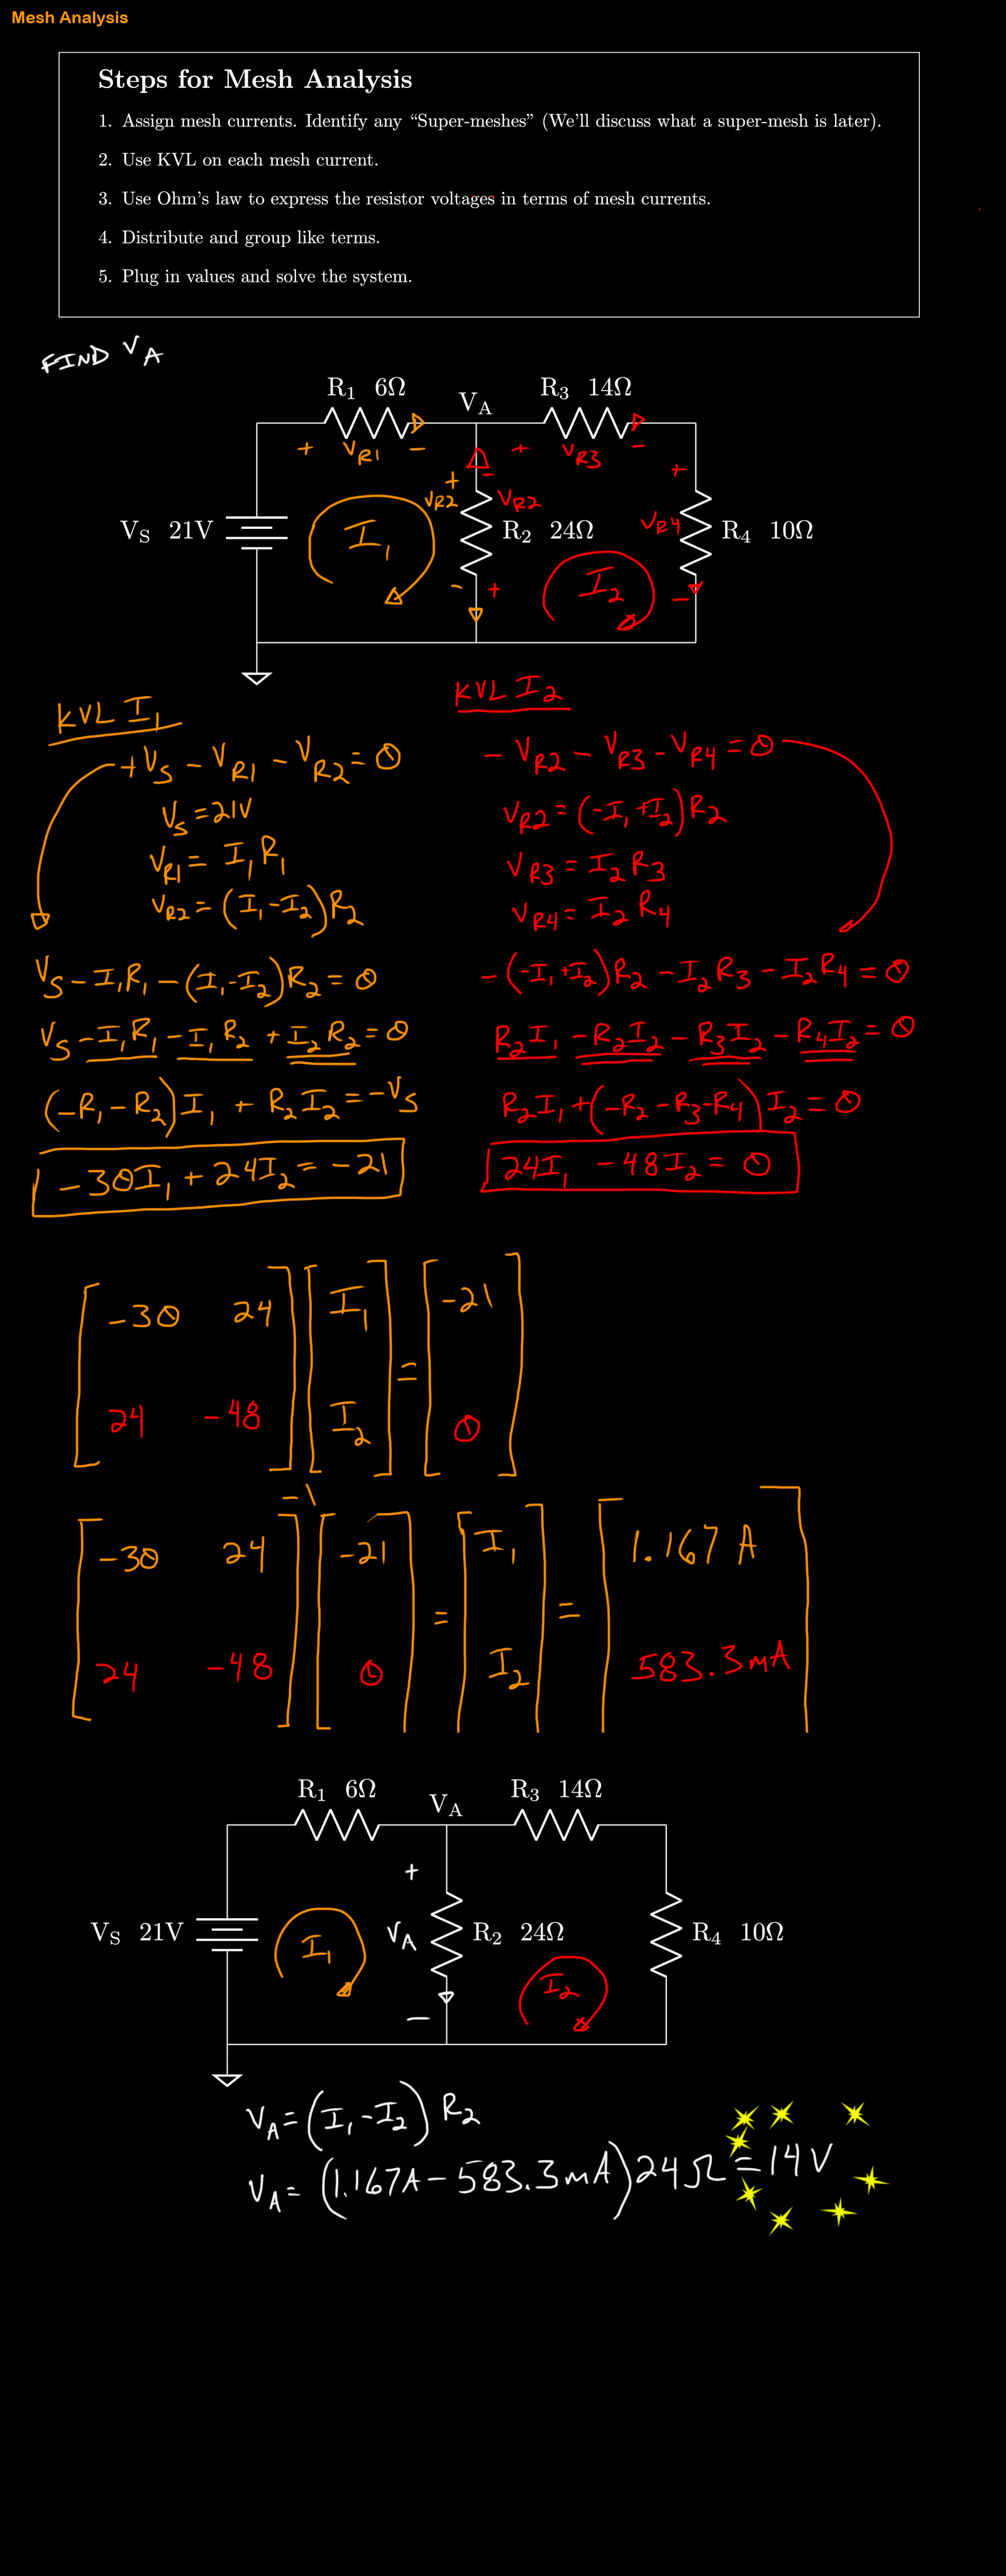 Mesh Analysis
Steps for Mesh Analysis
1. Assign mesh currents. Identify any “Super-meshes” (We’ll discuss what a super-mesh is later).
2. Use KVL on each mesh current.
3. Use Ohm’s law to express the resistor voltages in terms of mesh currents.
4. Distribute and group like terms.
5. Plug in values and solve the system.
FIND V_A
R₁ 6Ω
V_A
R₃ 14Ω
+ V_R1 −
+ V_R3 −
+
V_R2
−
−
V_R2
+
+
V_R4
−
V_S 21V
I₁
R₂ 24Ω
I₂
R₄ 10Ω
KVL I₁
+V_S − V_R1 − V_R2 = 0
V_S = 21V
V_R1 = I₁R₁
V_R2 = (I₁ − I₂)R₂
V_S − I₁R₁ − (I₁ − I₂)R₂ = 0
V_S − I₁R₁ − I₁R₂ + I₂R₂ = 0
(−R₁ − R₂)I₁ + R₂I₂ = −V_S
−30I₁ + 24I₂ = −21
KVL I₂
− V_R2 − V_R3 − V_R4 = 0
V_R2 = (−I₁ + I₂)R₂
V_R3 = I₂R₃
V_R4 = I₂R₄
−(−I₁ + I₂)R₂ − I₂R₃ − I₂R₄ = 0
R₂I₁ − R₂I₂ − R₃I₂ − R₄I₂ = 0
R₂I₁ + (−R₂ − R₃ − R₄)I₂ = 0
24I₁ − 48I₂ = 0
[−30 24] [I₁] = [−21]
[24 −48] [I₂] [0]
[−30 24]⁻¹ [−21] = [I₁] = [1.167 A]
[24 −48] [0] [I₂] [583.3 mA]
R₁ 6Ω
V_A
R₃ 14Ω
+
V_S 21V
I₁
V_A
R₂ 24Ω
I₂
R₄ 10Ω
−
V_A = (I₁ − I₂) R₂
V_A = (1.167A − 583.3mA) 24Ω = 14V